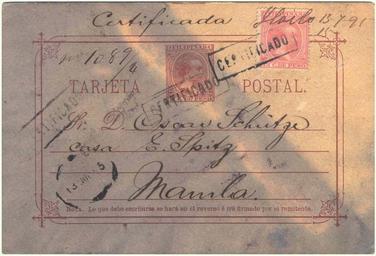 Certificada Iloilo 13 7 91
FILIPINAS
CERTIFICADO
TARJETA POSTAL.
CERTIFICADO
Sr. D. Oscar Schütge
casa E. Spitz
Manila
NOTA. Lo que debe escribirse se hará en el reverso é irá firmado por el remitente.